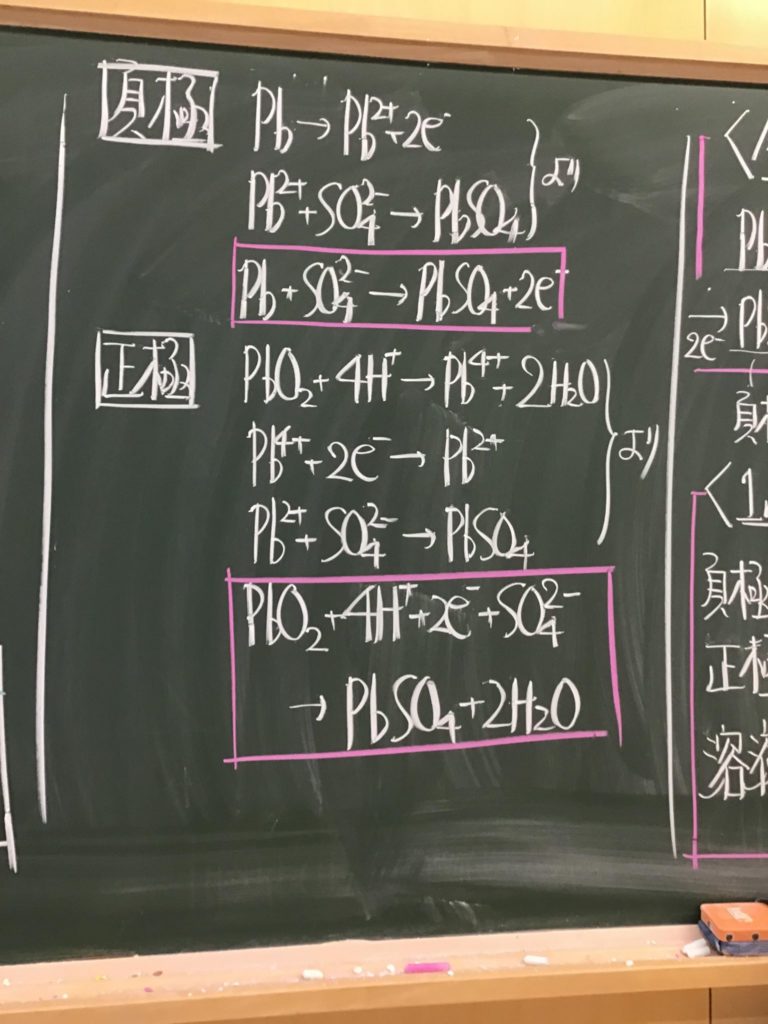 負極
Pb → Pb²⁺+2e⁻
Pb²⁺+SO₄²⁻ → PbSO₄
より
Pb+SO₄²⁻ → PbSO₄+2e⁻
正極
PbO₂+4H⁺ → Pb⁴⁺+2H₂O
Pb⁴⁺+2e⁻ → Pb²⁺
Pb²⁺+SO₄²⁻ → PbSO₄
より
PbO₂+4H⁺+2e⁻+SO₄²⁻
→ PbSO₄+2H₂O
Pb
→ Pb
2e⁻
負極
<1.
負極
正極
溶液